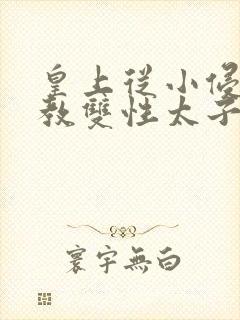 皇上從小侵
教雙性太子
寰宇無白